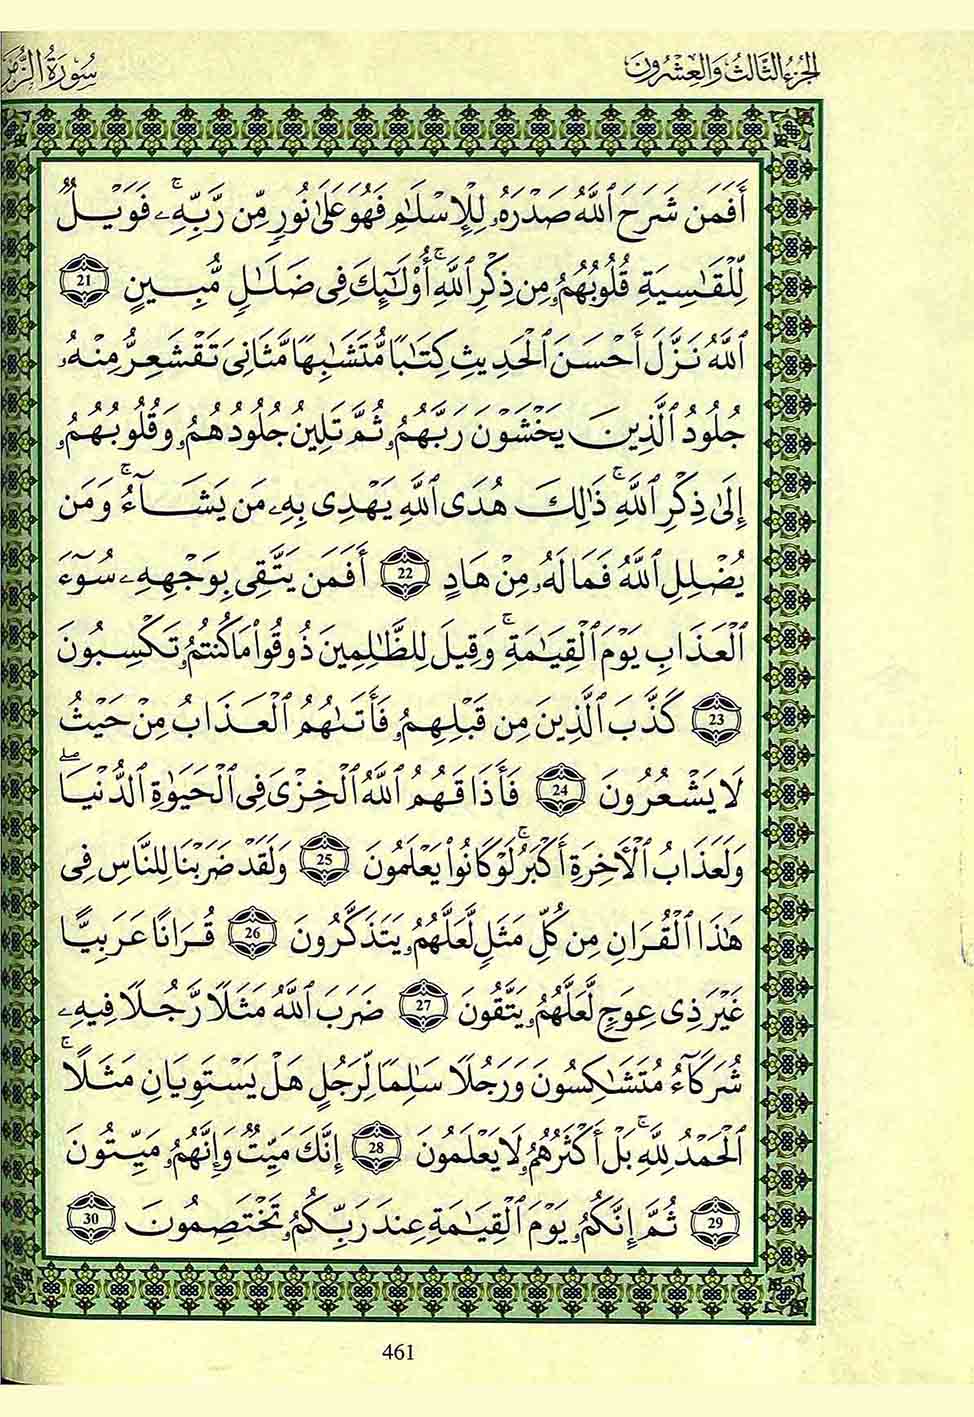 الجزء الثالث والعشرون
سورة الزمر
أَفَمَن شَرَحَ ٱللَّهُ صَدْرَهُۥ لِلْإِسْلَٰمِ فَهُوَ عَلَىٰ نُورٍ مِّن رَّبِّهِۦۚ فَوَيْلٌ
لِّلْقَٰسِيَةِ قُلُوبُهُمُۥ مِن ذِكْرِ ٱللَّهِۚ أُوْلَٰٓئِكَ فِى ضَلَٰلٍ مُّبِينٍ 21
ٱللَّهُ نَزَّلَ أَحْسَنَ ٱلْحَدِيثِ كِتَٰبًا مُّتَشَٰبِهًا مَّثَانِىَ تَقْشَعِرُّ مِنْهُۥ
جُلُودُ ٱلَّذِينَ يَخْشَوْنَ رَبَّهُمُۥ ثُمَّ تَلِينُ جُلُودُهُمُۥ وَقُلُوبُهُمُۥ
إِلَىٰ ذِكْرِ ٱللَّهِۚ ذَٰلِكَ هُدَى ٱللَّهِ يَهْدِى بِهِۦ مَن يَشَآءُۚ وَمَن
يُضْلِلِ ٱللَّهُ فَمَا لَهُۥ مِنْ هَادٍ 22 أَفَمَن يَتَّقِى بِوَجْهِهِۦ سُوٓءَ
ٱلْعَذَابِ يَوْمَ ٱلْقِيَٰمَةِۚ وَقِيلَ لِلظَّٰلِمِينَ ذُوقُواْ مَا كُنتُمُۥ تَكْسِبُونَ
23 كَذَّبَ ٱلَّذِينَ مِن قَبْلِهِمُۥ فَأَتَىٰهُمُ ٱلْعَذَابُ مِنْ حَيْثُ
لَا يَشْعُرُونَ 24 فَأَذَاقَهُمُ ٱللَّهُ ٱلْخِزْىَ فِى ٱلْحَيَوٰةِ ٱلدُّنْيَاۖ
وَلَعَذَابُ ٱلْأَخِرَةِ أَكْبَرُۚ لَوْ كَانُواْ يَعْلَمُونَ 25 وَلَقَدْ ضَرَبْنَا لِلنَّاسِ فِى
هَٰذَا ٱلْقُرَانِ مِن كُلِّ مَثَلٍ لَّعَلَّهُمُۥ يَتَذَكَّرُونَ 26 قُرَانًا عَرَبِيًّا
غَيْرَ ذِى عِوَجٍ لَّعَلَّهُمُۥ يَتَّقُونَ 27 ضَرَبَ ٱللَّهُ مَثَلًا رَّجُلًا فِيهِۦ
شُرَكَآءُ مُتَشَٰكِسُونَ وَرَجُلًا سَٰلِمًا لِّرَجُلٍ هَلْ يَسْتَوِيَانِ مَثَلًاۚ
ٱلْحَمْدُ لِلَّهِۚ بَلْ أَكْثَرُهُمُۥ لَا يَعْلَمُونَ 28 إِنَّكَ مَيِّتٌ وَإِنَّهُمُۥ مَيِّتُونَ
29 ثُمَّ إِنَّكُمُۥ يَوْمَ ٱلْقِيَٰمَةِ عِندَ رَبِّكُمُۥ تَخْتَصِمُونَ 30
461